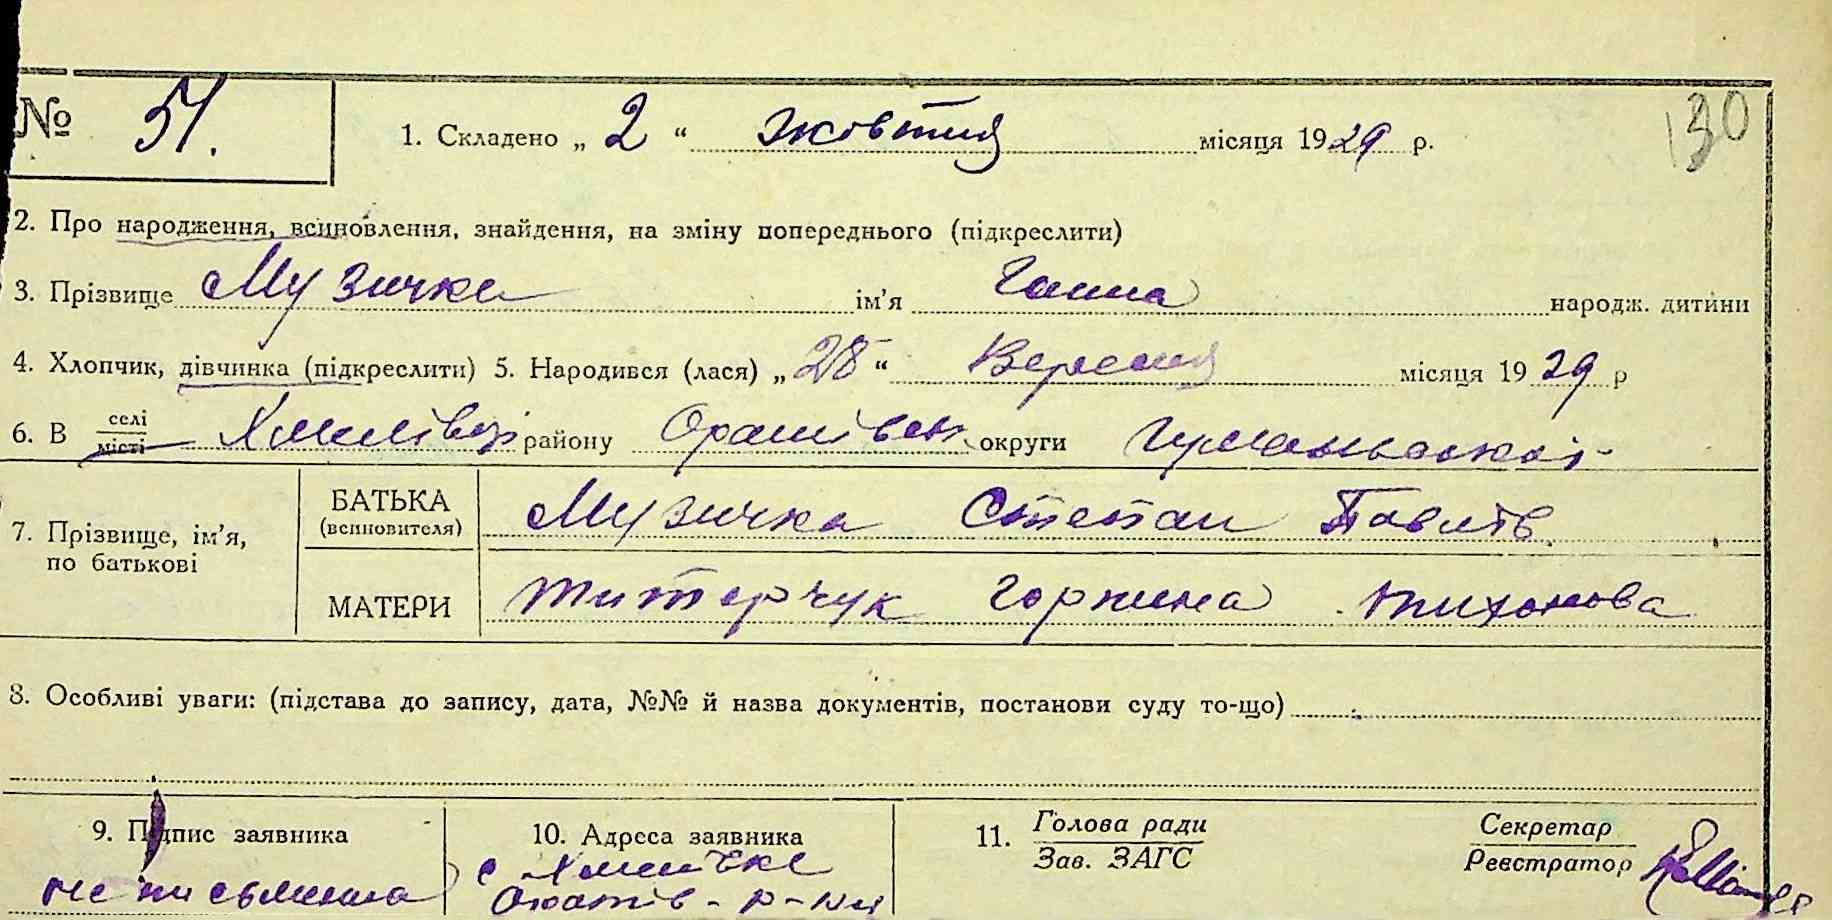 № 51. 1. Складено „ 2 “ жовтня місяця 1929 р. 130
2. Про народження, всиновлення, знайдення, на зміну попереднього (підкреслити)
3. Прізвище Музичка ім'я Ганна народж. дитини
4. Хлопчик, дівчинка (підкреслити) 5. Народився (лася) „ 28 “ Вересня місяця 1929 р
6. В селі
місті району округи Гуманьської
БАТЬКА
(всиновителя) Музичка Степан
7. Прізвище, ім'я,
по батькові
МАТЕРИ Титарчук Горпина Тихонова
8. Особливі уваги: (підстава до запису, дата, №№ й назва документів, постанови суду то-що)
9. Підпис заявника 10. Адреса заявника 11. Голова ради Секретар
Зав. ЗАГС Реєстратор
не письменна с р-ну